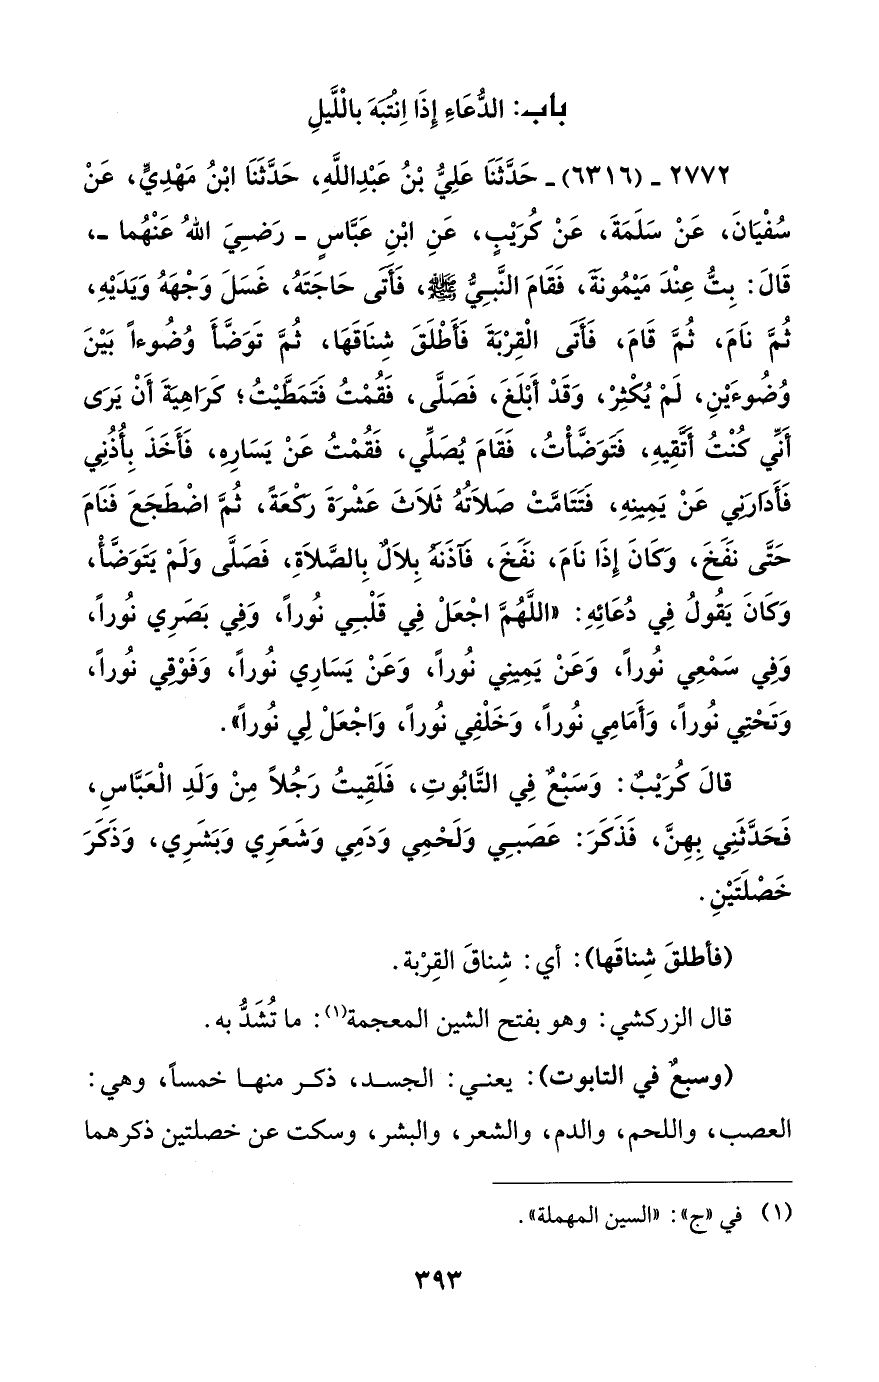 باب: الدُّعَاءِ إِذَا انْتُبَهَ بالْلَّيلِ
٢٧٧٢ ـ (٦٣١٦) ـ حَدَّثَنَا عَلِيُّ بْنُ عَبْدِاللَّهِ، حَدَّثَنَا ابْنُ مَهْدِيٍّ، عَنْ
سُفْيَانَ، عَنْ سَلَمَةَ، عَنْ كُرَيْبٍ، عَنِ ابْنِ عَبَّاسٍ ـ رَضِيَ اللهُ عَنْهُما ـ،
قَالَ: بِتُّ عِنْدَ مَيْمُونَةَ، فَقَامَ النَّبِيُّ ﷺ، فَأَتَى حَاجَتَهُ، غَسَلَ وَجْهَهُ وَيَدَيْهِ،
ثُمَّ نَامَ، ثُمَّ قَامَ، فَأَتَى الْقِرْبَةَ فَأَطْلَقَ شِنَاقَهَا، ثُمَّ تَوَضَّأَ وُضُوءاً بَيْنَ
وُضُوءَيْنِ، لَمْ يُكْثِرْ، وَقَدْ أَبْلَغَ، فَصَلَّى، فَقُمْتُ فَتَمَطَّيْتُ؛ كَرَاهِيَةَ أَنْ يَرَى
أَنِّي كُنْتُ أَتَّقِيهِ، فَتَوَضَّأْتُ، فَقَامَ يُصَلِّي، فَقُمْتُ عَنْ يَسَارِهِ، فَأَخَذَ بِأُذُنِي
فَأَدَارَنِي عَنْ يَمِينِهِ، فَتَتَامَّتْ صَلاَتُهُ ثَلاَثَ عَشْرَةَ رَكْعَةً، ثُمَّ اضْطَجَعَ فَنَامَ
حَتَّى نَفَخَ، وَكَانَ إِذَا نَامَ، نَفَخَ، فَآذَنَهُ بِلاَلٌ بِالصَّلاَةِ، فَصَلَّى وَلَمْ يَتَوَضَّأْ،
وَكَانَ يَقُولُ فِي دُعَائِهِ: «اللَّهُمَّ اجْعَلْ فِي قَلْبِي نُوراً، وَفِي بَصَرِي نُوراً،
وَفِي سَمْعِي نُوراً، وَعَنْ يَمِينِي نُوراً، وَعَنْ يَسَارِي نُوراً، وَفَوْقِي نُوراً،
وَتَحْتِي نُوراً، وَأَمَامِي نُوراً، وَخَلْفِي نُوراً، وَاجْعَلْ لِي نُوراً».
قالَ كُرَيْبٌ: وَسَبْعٌ فِي التَّابُوتِ، فَلَقِيتُ رَجُلاً مِنْ وَلَدِ الْعَبَّاسِ،
فَحَدَّثَنِي بِهِنَّ، فَذَكَرَ: عَصَبِي وَلَحْمِي وَدَمِي وَشَعَرِي وَبَشَرِي، وَذَكَرَ
خَصْلَتَيْنِ.
(فأطلقَ شِناقَها): أي: شِناقَ القِرْبة.
قال الزركشي: وهو بفتح الشين المعجمة(١): ما تُشَدُّ به.
(وسبعٌ في التابوت): يعني: الجسد، ذكر منها خمساً، وهي:
العصب، واللحم، والدم، والشعر، والبشر، وسكت عن خصلتين ذكرهما
(١) في «ج»: «السين المهملة».
٣٩٣